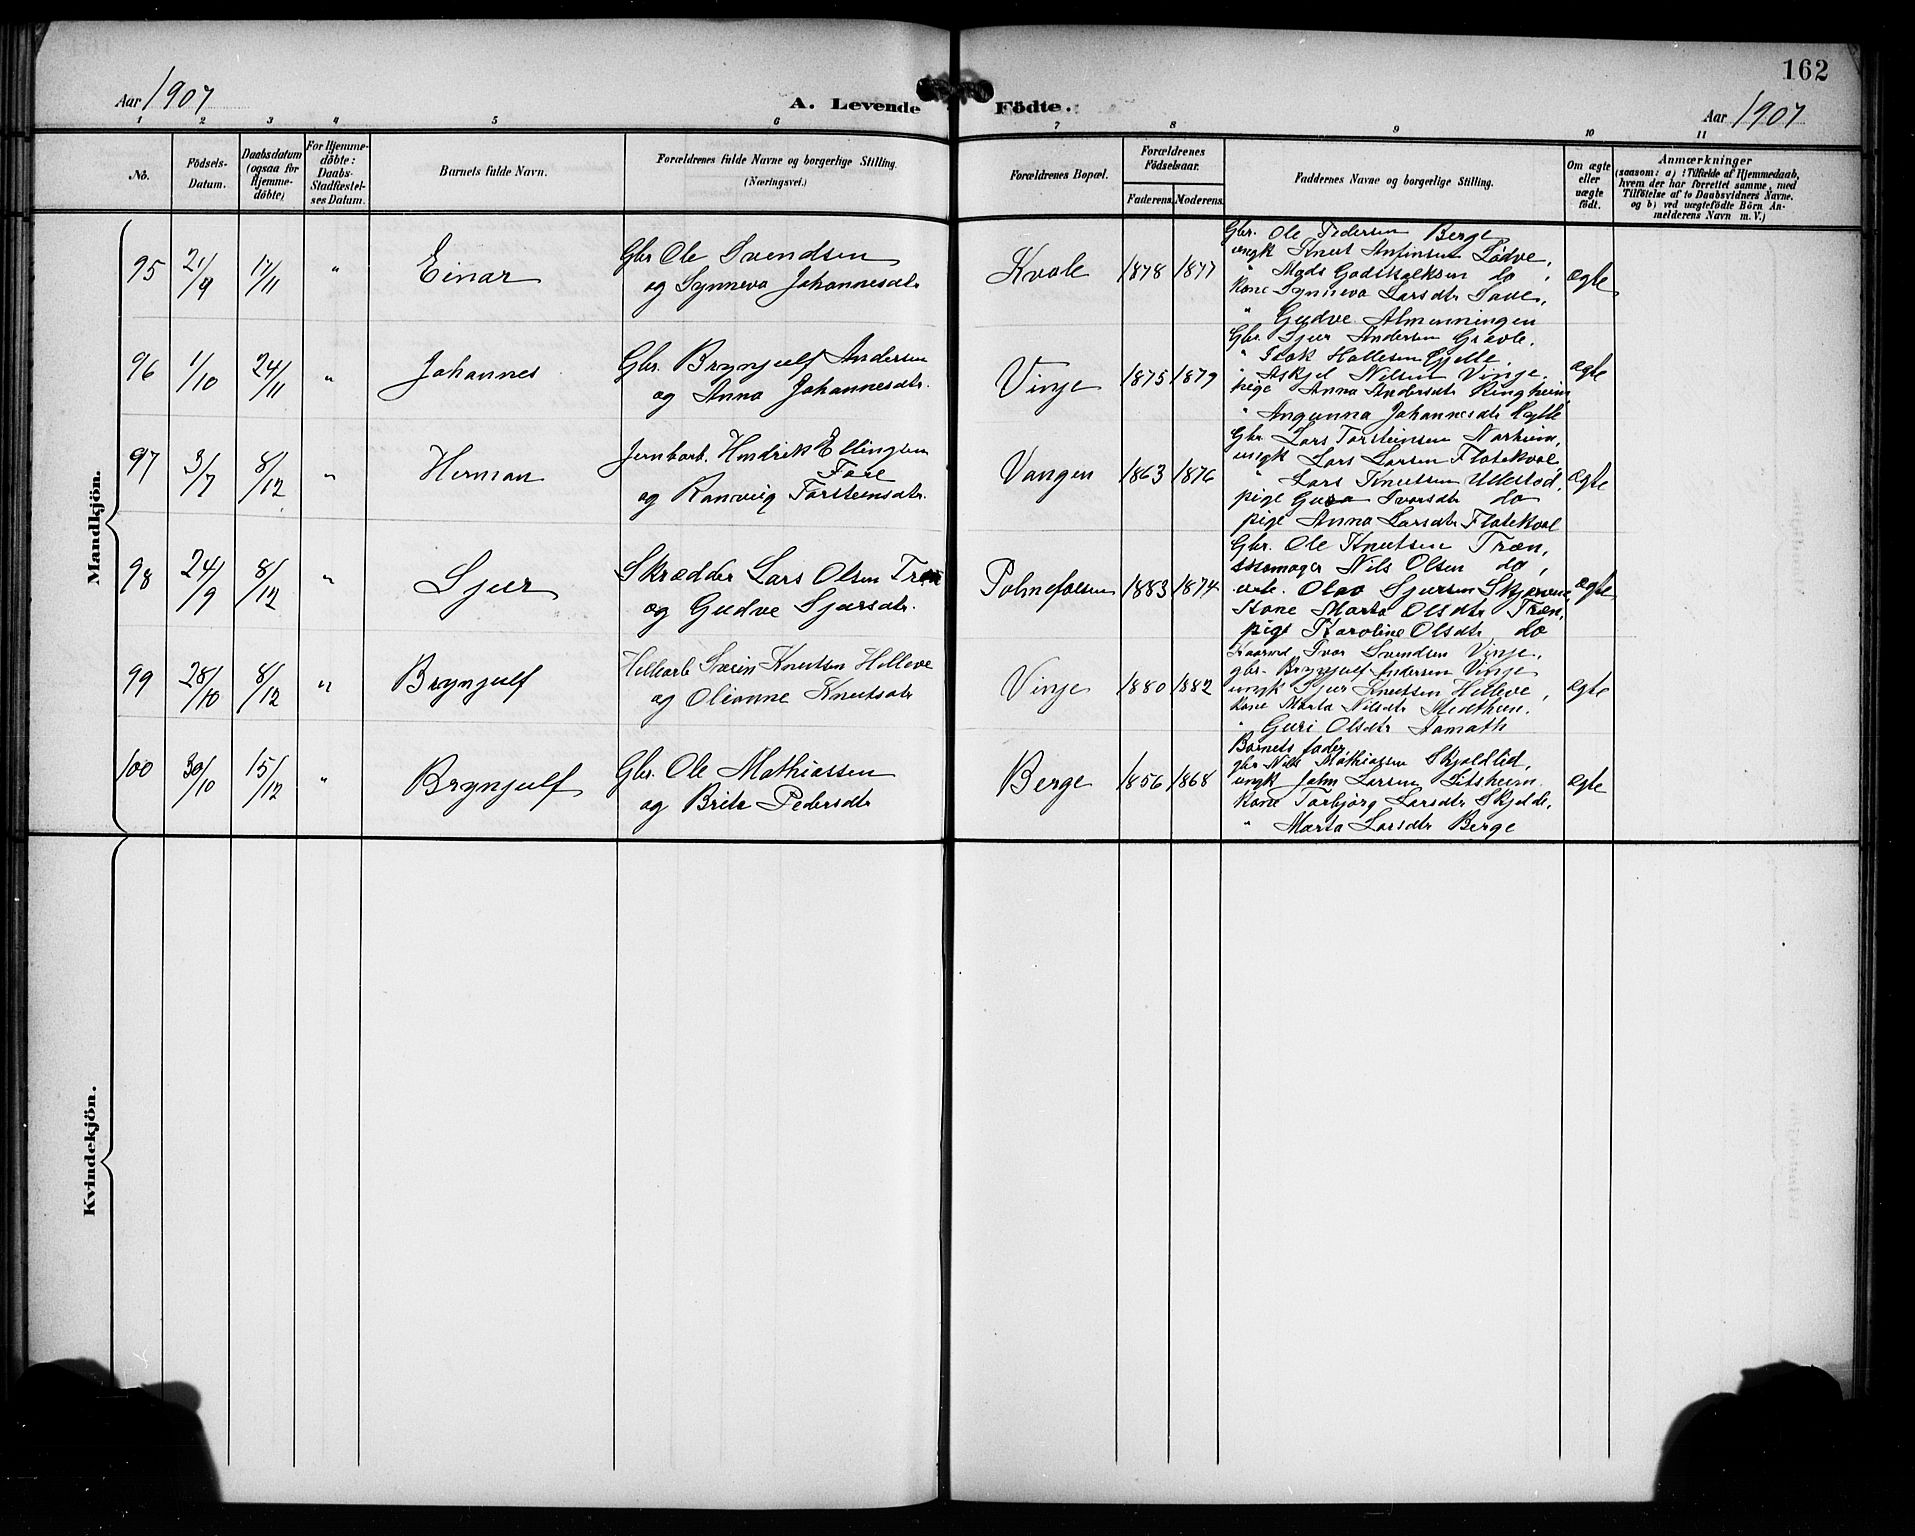 162
Aar 1907
A. Levende Födte.
Aar 1907
1 2 3 4 5 6 7 8 9 10 11
No.
Födsels-Datum.
Daabsdatum (ogsaa for Hjemme-döbte)
For Hjemme-döbte: Daabs-Stadfæstel-ses Datum.
Barnets fulde Navn.
Forældrenes fulde Navne og borgerlige Stilling.
(Næringsvei.)
Forældrenes Bopæl.
Forældrenes Födselsaar.
Faderens. Moderens.
Faddernes Navne og borgerlige Stilling.
Om ægte eller uægte födt.
Anmærkninger
(saasom: a) i Tilfælde af Hjemmedaab,
hvem der har forrettet samme, med
Tilföielse af to Daabsvidners Navne.
og b) ved uægtefödte Börn An-
melderens Navn m. V.)
Mandkjön.
95 21/9 17/11 " Einar
Gbr Ole Svendsen
og Synneva Johannesdtr
Kvale 1878 1877
Gbr. Ole Pedersen Berge
ungk Knut Anfinsen Lødve,
" Mads Godskalksen do,
Kone Synneva Larsdtr
" Gudve Almenningen
ægte
96 1/10 24/11 " Johannes
Gbr. Brynjulf Andersen
og Anna Johannesdtr.
Vinje 1875 1879
Gbr. Sjur Andersen
" Isak Hallesen Gjelle,
" Askjel Nilsen Vinje.
pige Anna Andersdtr Ringheim,
" Angunna Johannesdtr
ægte
97 3/7 8/12 " Herman
Jernbarb. Hendrik Ellingsen
og Ranveig Torsteinsdtr.
Vangen 1863 1876
Gbr. Lars Torsteinsen Norheim,
ungk Lars Larsen Flatekval
" Lars Knutsen Ullestad,
pige Ivarsdtr do
pige Anna Larsdtr Flatekval
ægte
98 24/9 8/12 " Sjur
Skrædder Lars Olsen Træn
og Gudve Sjursdtr.
Palmefossen 1883 1874
Gbr. Ole Knutsen Træn,
skomager Nils Olsen do,
arb. Olav Sjursen
Kone Marta Olsdtr Træn,
pige Karoline Olsdtr do
ægte
99 28/10 8/12 " Brynjulf
Knutsen Helleve
og Olianne Knutsdtr
Vinje 1880 1882
Ivar Svendsen Vinje,
gbr. Brynjulf Andersen Vinje
ungk Sjur Knutsen Helleve,
Kone Marta Nilsdtr
" Guri Olsdtr
ægte
100 30/10 15/12 " Brynjulf
Gbr. Ole Mathiassen
og Brita Pedersdtr
Berge 1856 1868
Barnets fader,
gbr Nils Mathiassen Skjeldlid,
ungk John Larsen
Kone Torbjørg Larsdtr Skjelde,
" Marta Larsdtr Berge
ægte
Kvindekjön.